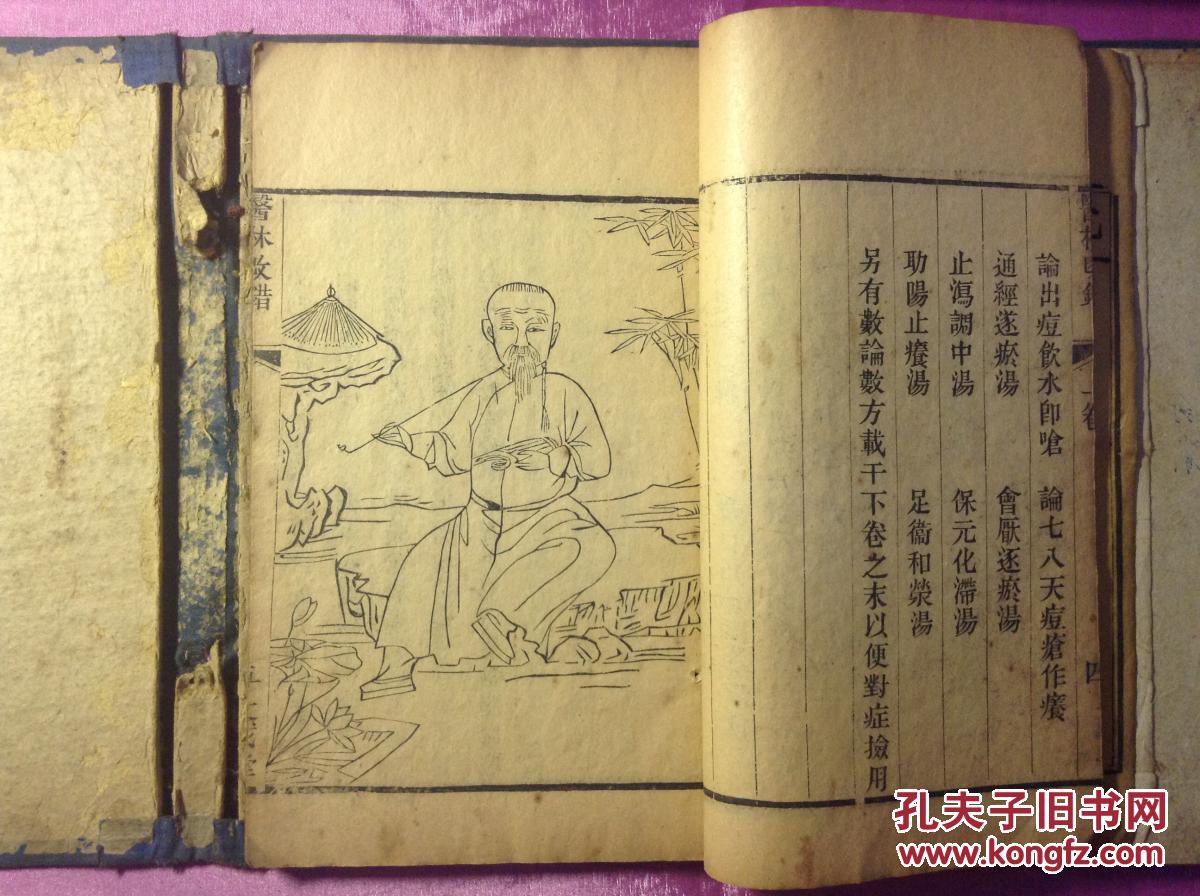 論出痘飲水卽嗆　論七八天痘瘡作癢
通經逐瘀湯　會厭逐瘀湯
止瀉調中湯　保元化滯湯
助陽止癢湯　足衞和榮湯
另有數論數方載于下卷之末以便對症撿用
四
醫林改錯
孔夫子旧书网
www.kongfz.com